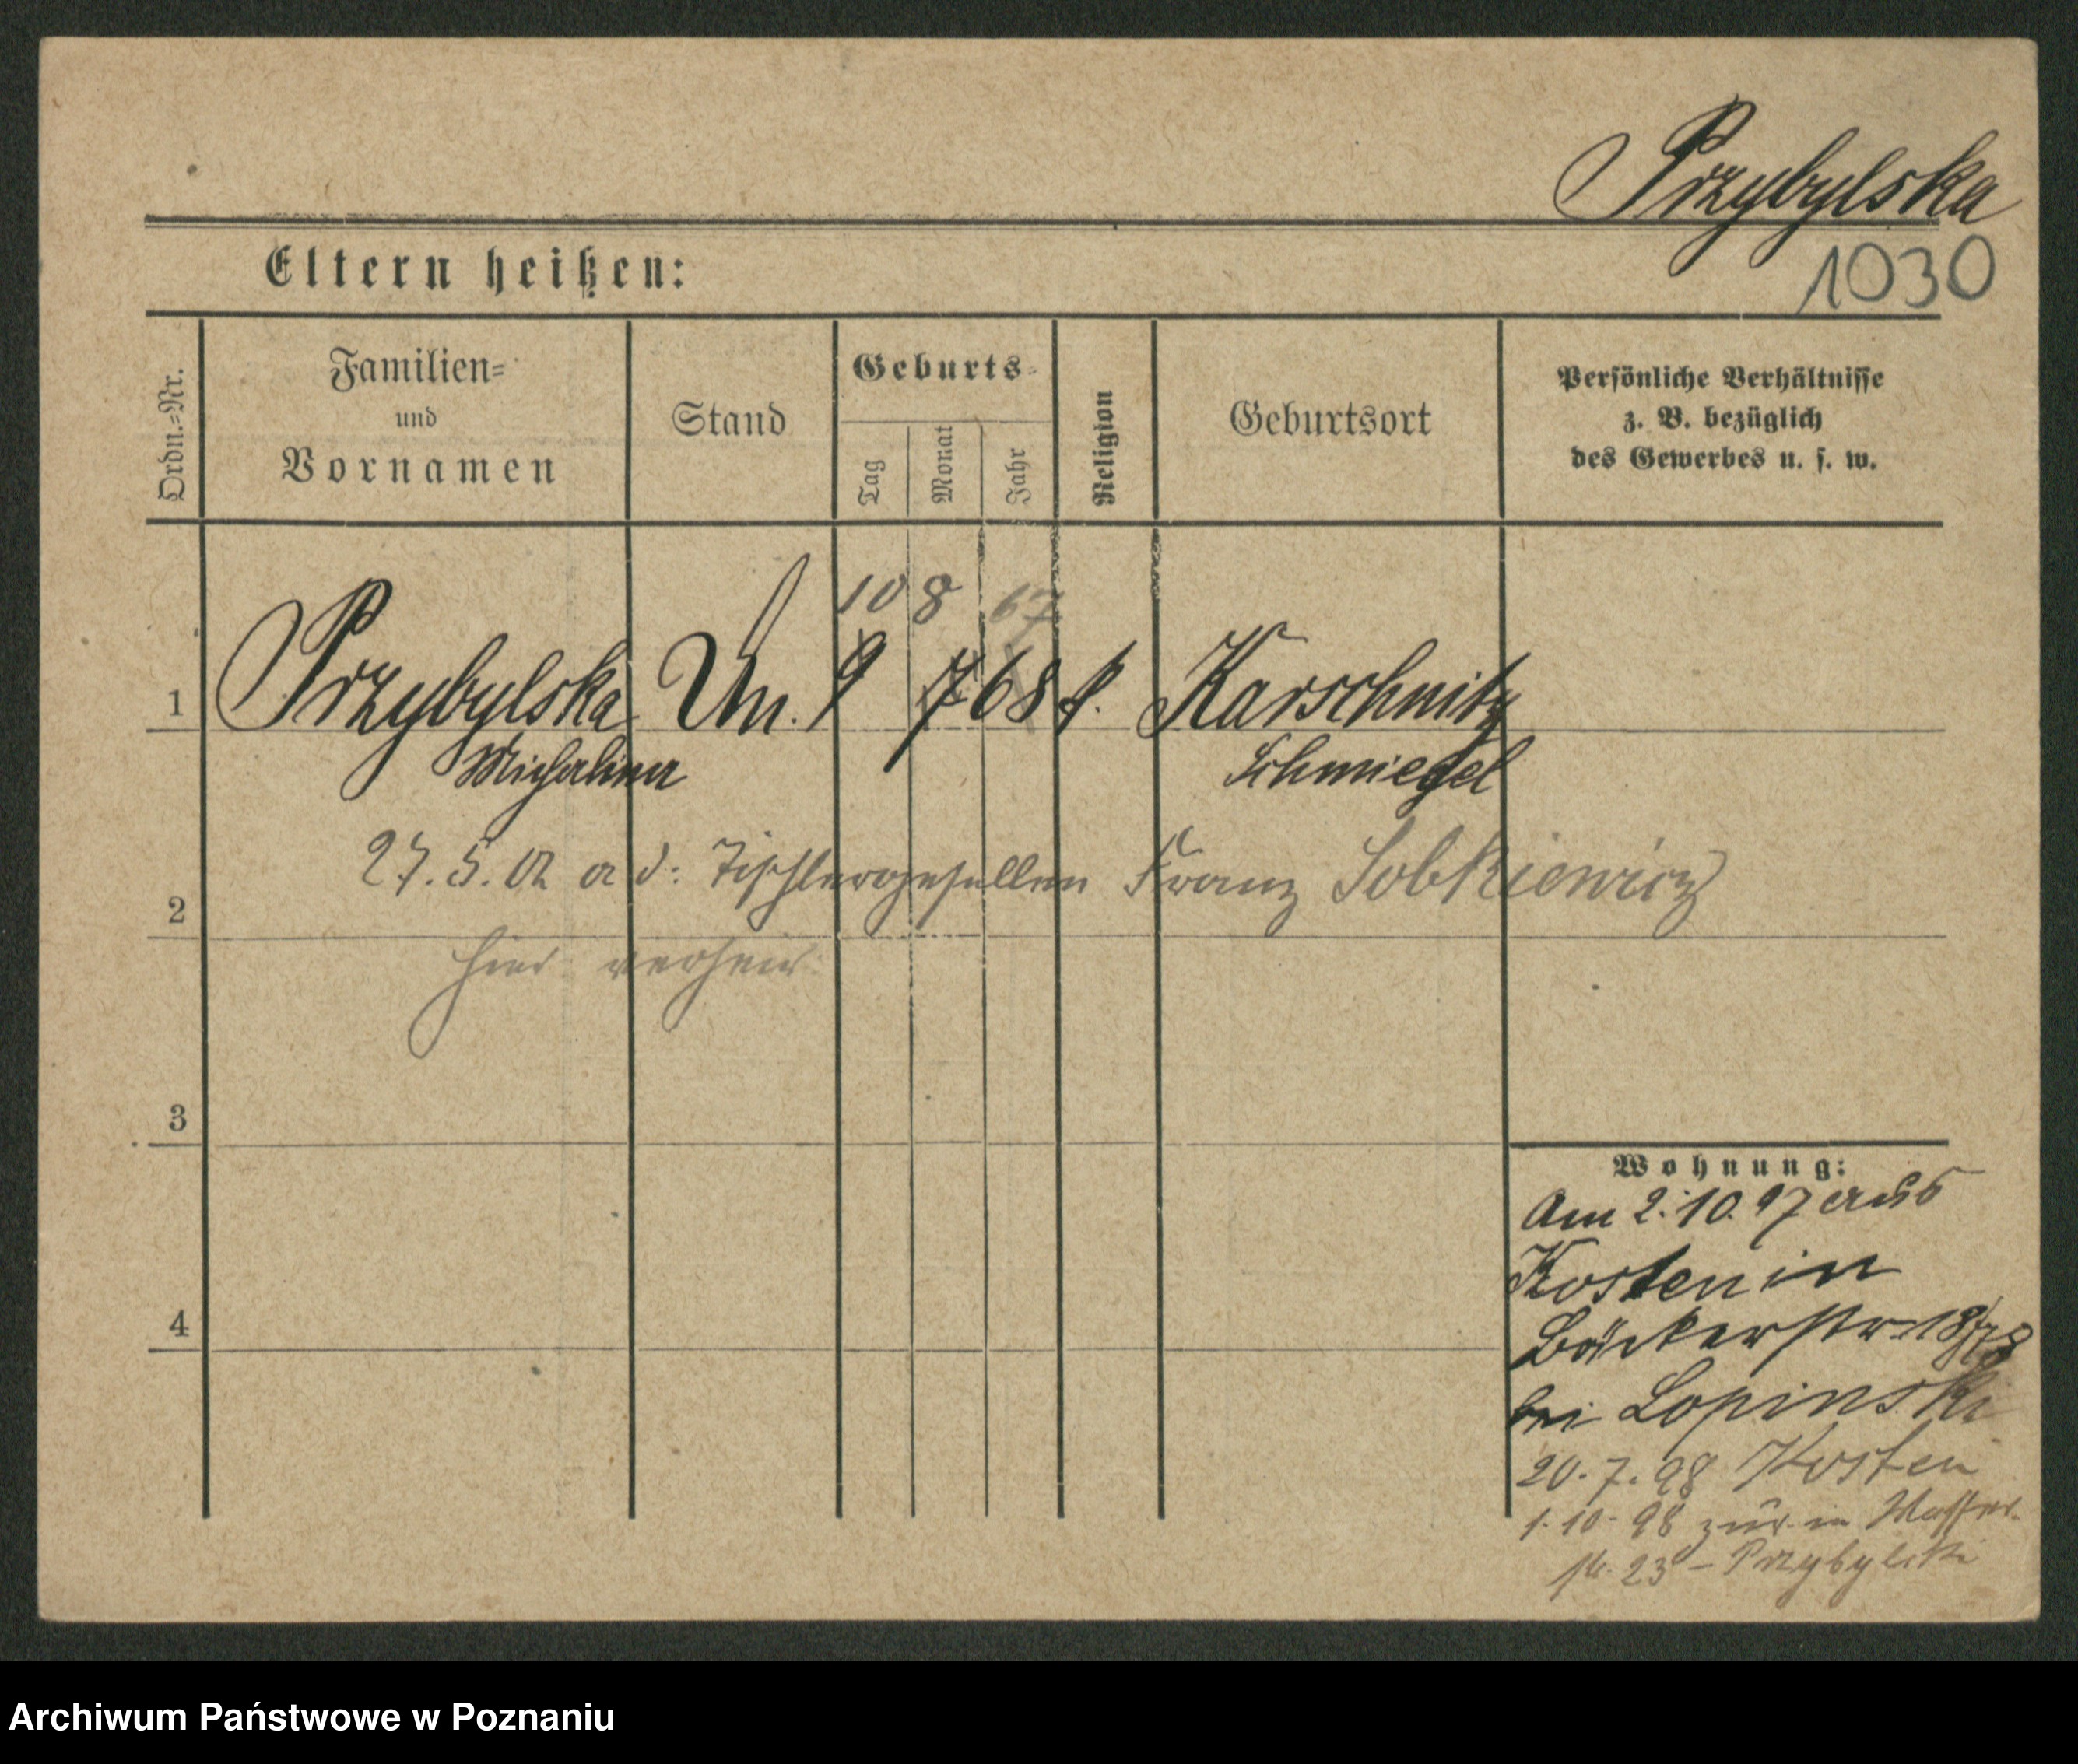 Przybylska
1030
Eltern heißen:
Ordn.=Nr.
Familien=
und
Vornamen
Stand
Geburts-
Tag
Monat
Jahr
Religion
Geburtsort
Persönliche Verhältnisse
z. B. bezüglich
des Gewerbes u. s. w.
10 8 67
1 Przybylska Un. 9 7 68 k. Karschnitz
Michalina Schmiegel
27.5.02 a d: Tischlergesellen Franz Sobkiewicz
2
hier verheir.
3
Wohnung:
Am 2.10.97 aus
Kosten in
4
Bäckerstr. 18
bei Lopinski
20.7.98 Kosten
1.10.98 zur. in Wasser-
str. 23 - Przybylski
Archiwum Państwowe w Poznaniu